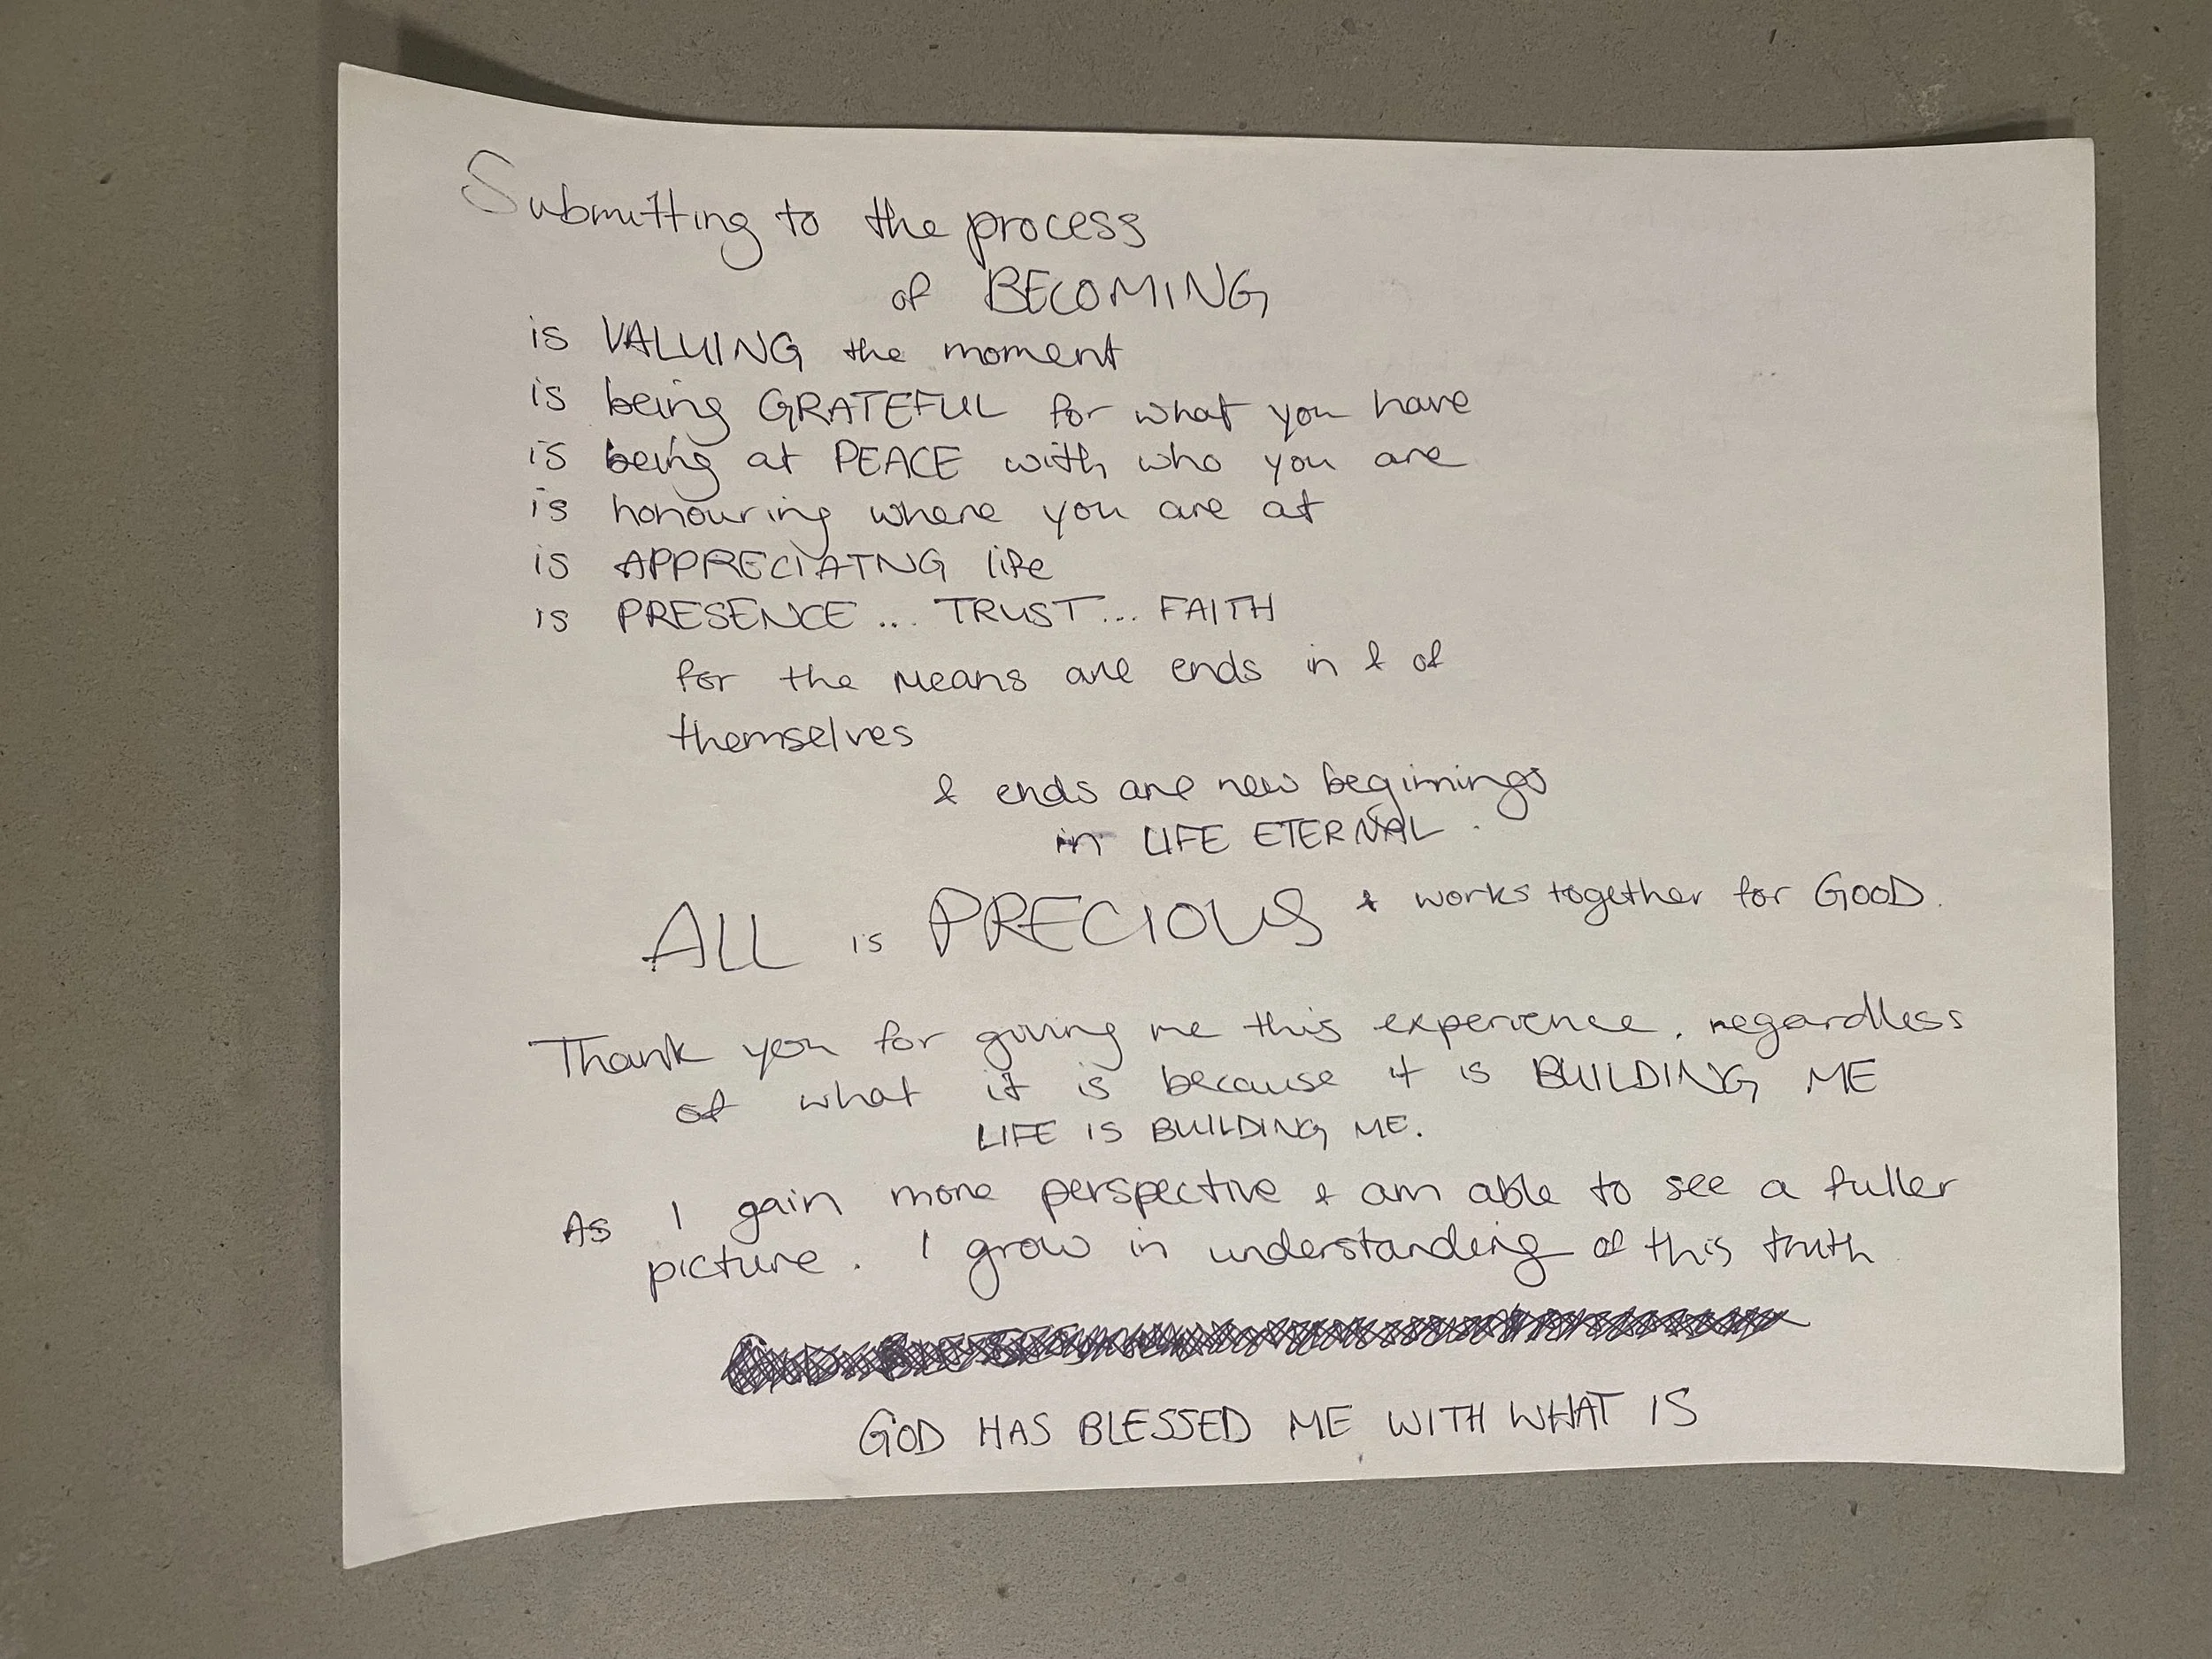 Submitting to the process
of BECOMING
is VALUING the moment
is being GRATEFUL for what you have
is being at PEACE with who you are
is honouring where you are at
is APPRECIATNG life
is PRESENCE... TRUST... FAITH
for the means are ends in & of
themselves
& ends are new beginnings
in LIFE ETERNAL.
ALL is PRECIOUS & works together for GOOD.
Thank you for giving me this experience, regardless
of what it is because it is BUILDING ME
LIFE IS BUILDING ME.
As I gain more perspective & am able to see a fuller
picture. I grow in understanding of this truth
GOD HAS BLESSED ME WITH WHAT IS